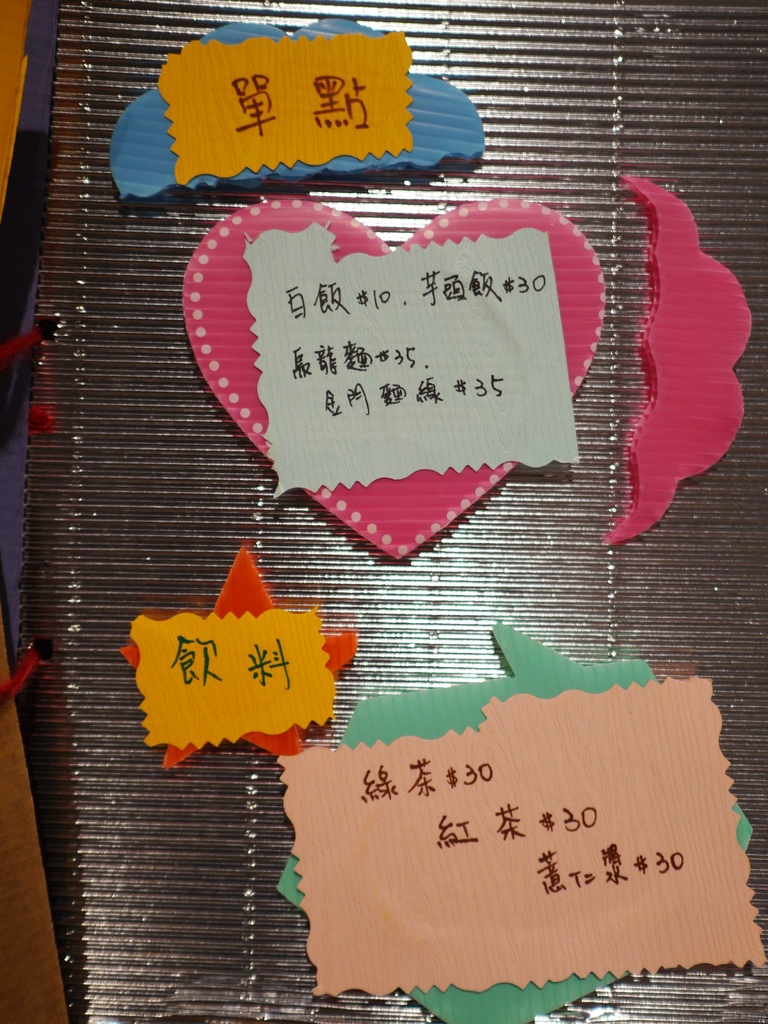 單點
白飯$10. 芋頭飯$30
烏龍麵$35.
金門麵線$35
飲料
綠茶$30
紅茶$30
薏仁漿$30